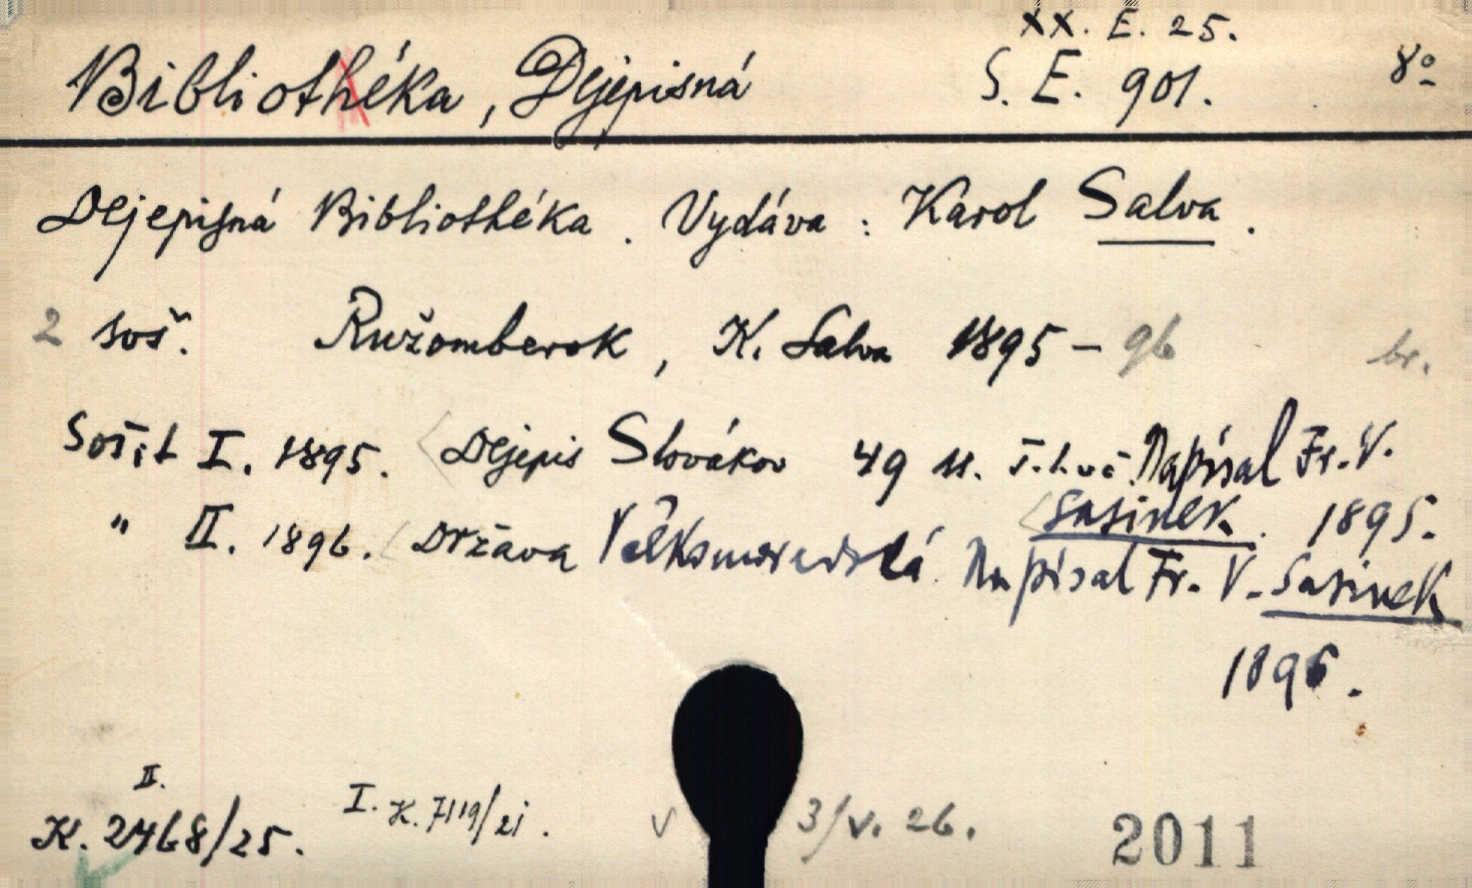 XX. E. 25.
Bibliothéka, Dejepisná S. E. 901. 8º
Dejepisná Bibliothéka. Vydáva: Karol Salva.
2 soš. Ružomberok, K. Salva 1895-96 br.
Sošit I. 1895. Dejepis Slovákov 49 Napísal Fr. V.
Sasinek. 1895.
" II. 1896. Država Veľkomoravská. Napísal Fr. V. Sasinek
1896.
II.
K. 2468/25. I. K. v 3/V. 26. 2011